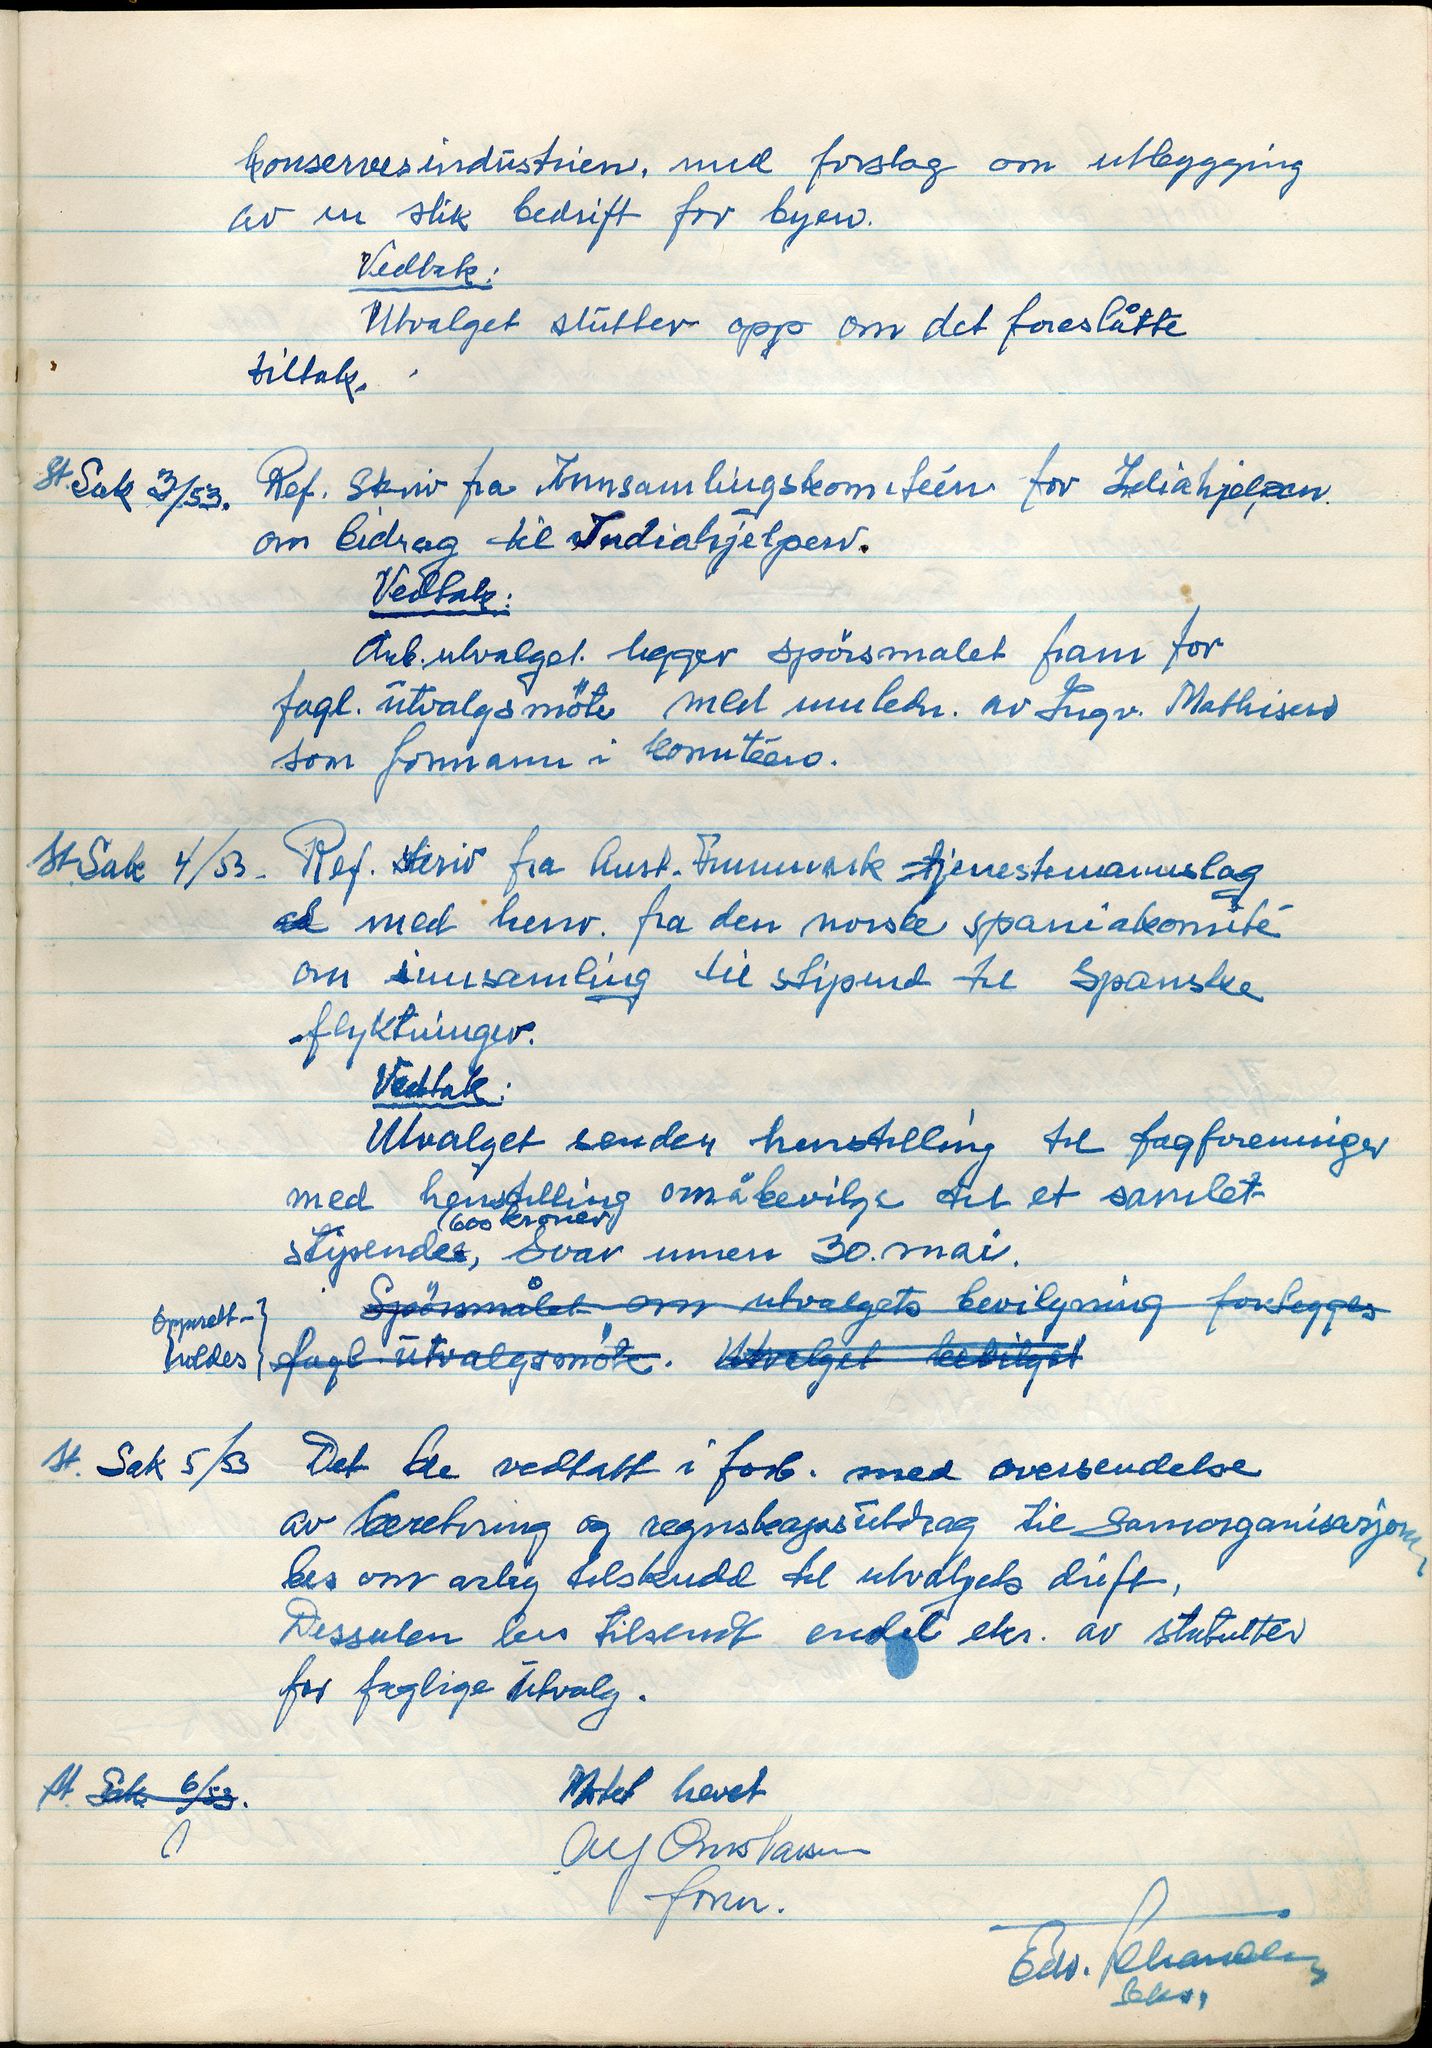 konservesindüstrien, med forslag om utbyggging
av en slik bedrift for byen.
Vedtak:
Utvalget stütter opp om det foreslåtte
tiltak.
St. Sak 3/53. Ref. Skriv fra Innsamlingskomitéen for Indiahjelpen
om bidrag til Indiahjelpen.
Vedtak:
Arb. utvalget. legger spörsmalet fram for
fagl. ütvalgsmöte med innledn. av Ingv. Mathisen
som formann i komitéen.
St. Sak 4/53. Ref. skriv fra Aust-Finnmark tjenestemannslag
med henv. fra den norske spaniakomité
om innsamling til stipend til Spanske
flyktninger.
Vedtak:
Utvalget sender henstelling til fagforeninger
med henstelling om å bevilge til et samlet
600 kroner
stipendes, Svar innen 30. mai.
Spörsmålet om utvalgets bevilgning forlegges
Opprett-
holdes
fagl. ütvalgsmöte. Utvalget bevilget
St. Sak 5/53 Det ble vedtatt i forb. med oversendelse
av beretning og regnskapsütdrag til Samorganisasjonen
bes om årlig tilskudd til utvalgets drift,
Dessuten bes tilsendt endel eks. av statutter
for faglige ütvalg.
St. Sak 6/53. Møtet hevet
Alf
form.
Edv.
Sekr.